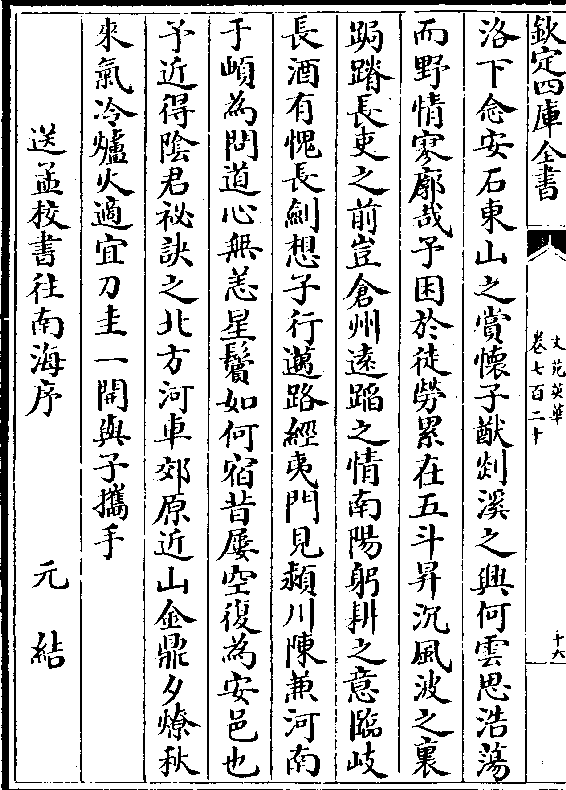 欽定四庫全書
文苑英華
卷七百二十
十六
洛下念安石東山之賞懷子猷剡溪之興何雲思浩蕩
而野情寥廓哉予困於徒勞累在五斗昇沉風波之裏
跼蹐長吏之前豈倉州遠蹈之情南陽躬耕之意臨岐
長酒有愧長劍想子行邁路經夷門見潁川陳兼河南
于頔為問道心無恙星鬢如何宿昔屢空復為安邑也
予近得陰君祕訣之北方河車郊原近山金鼎夕燎秋
來氣冷爐火適宜刀圭一開與子攜手
送孟校書往南海序
元結